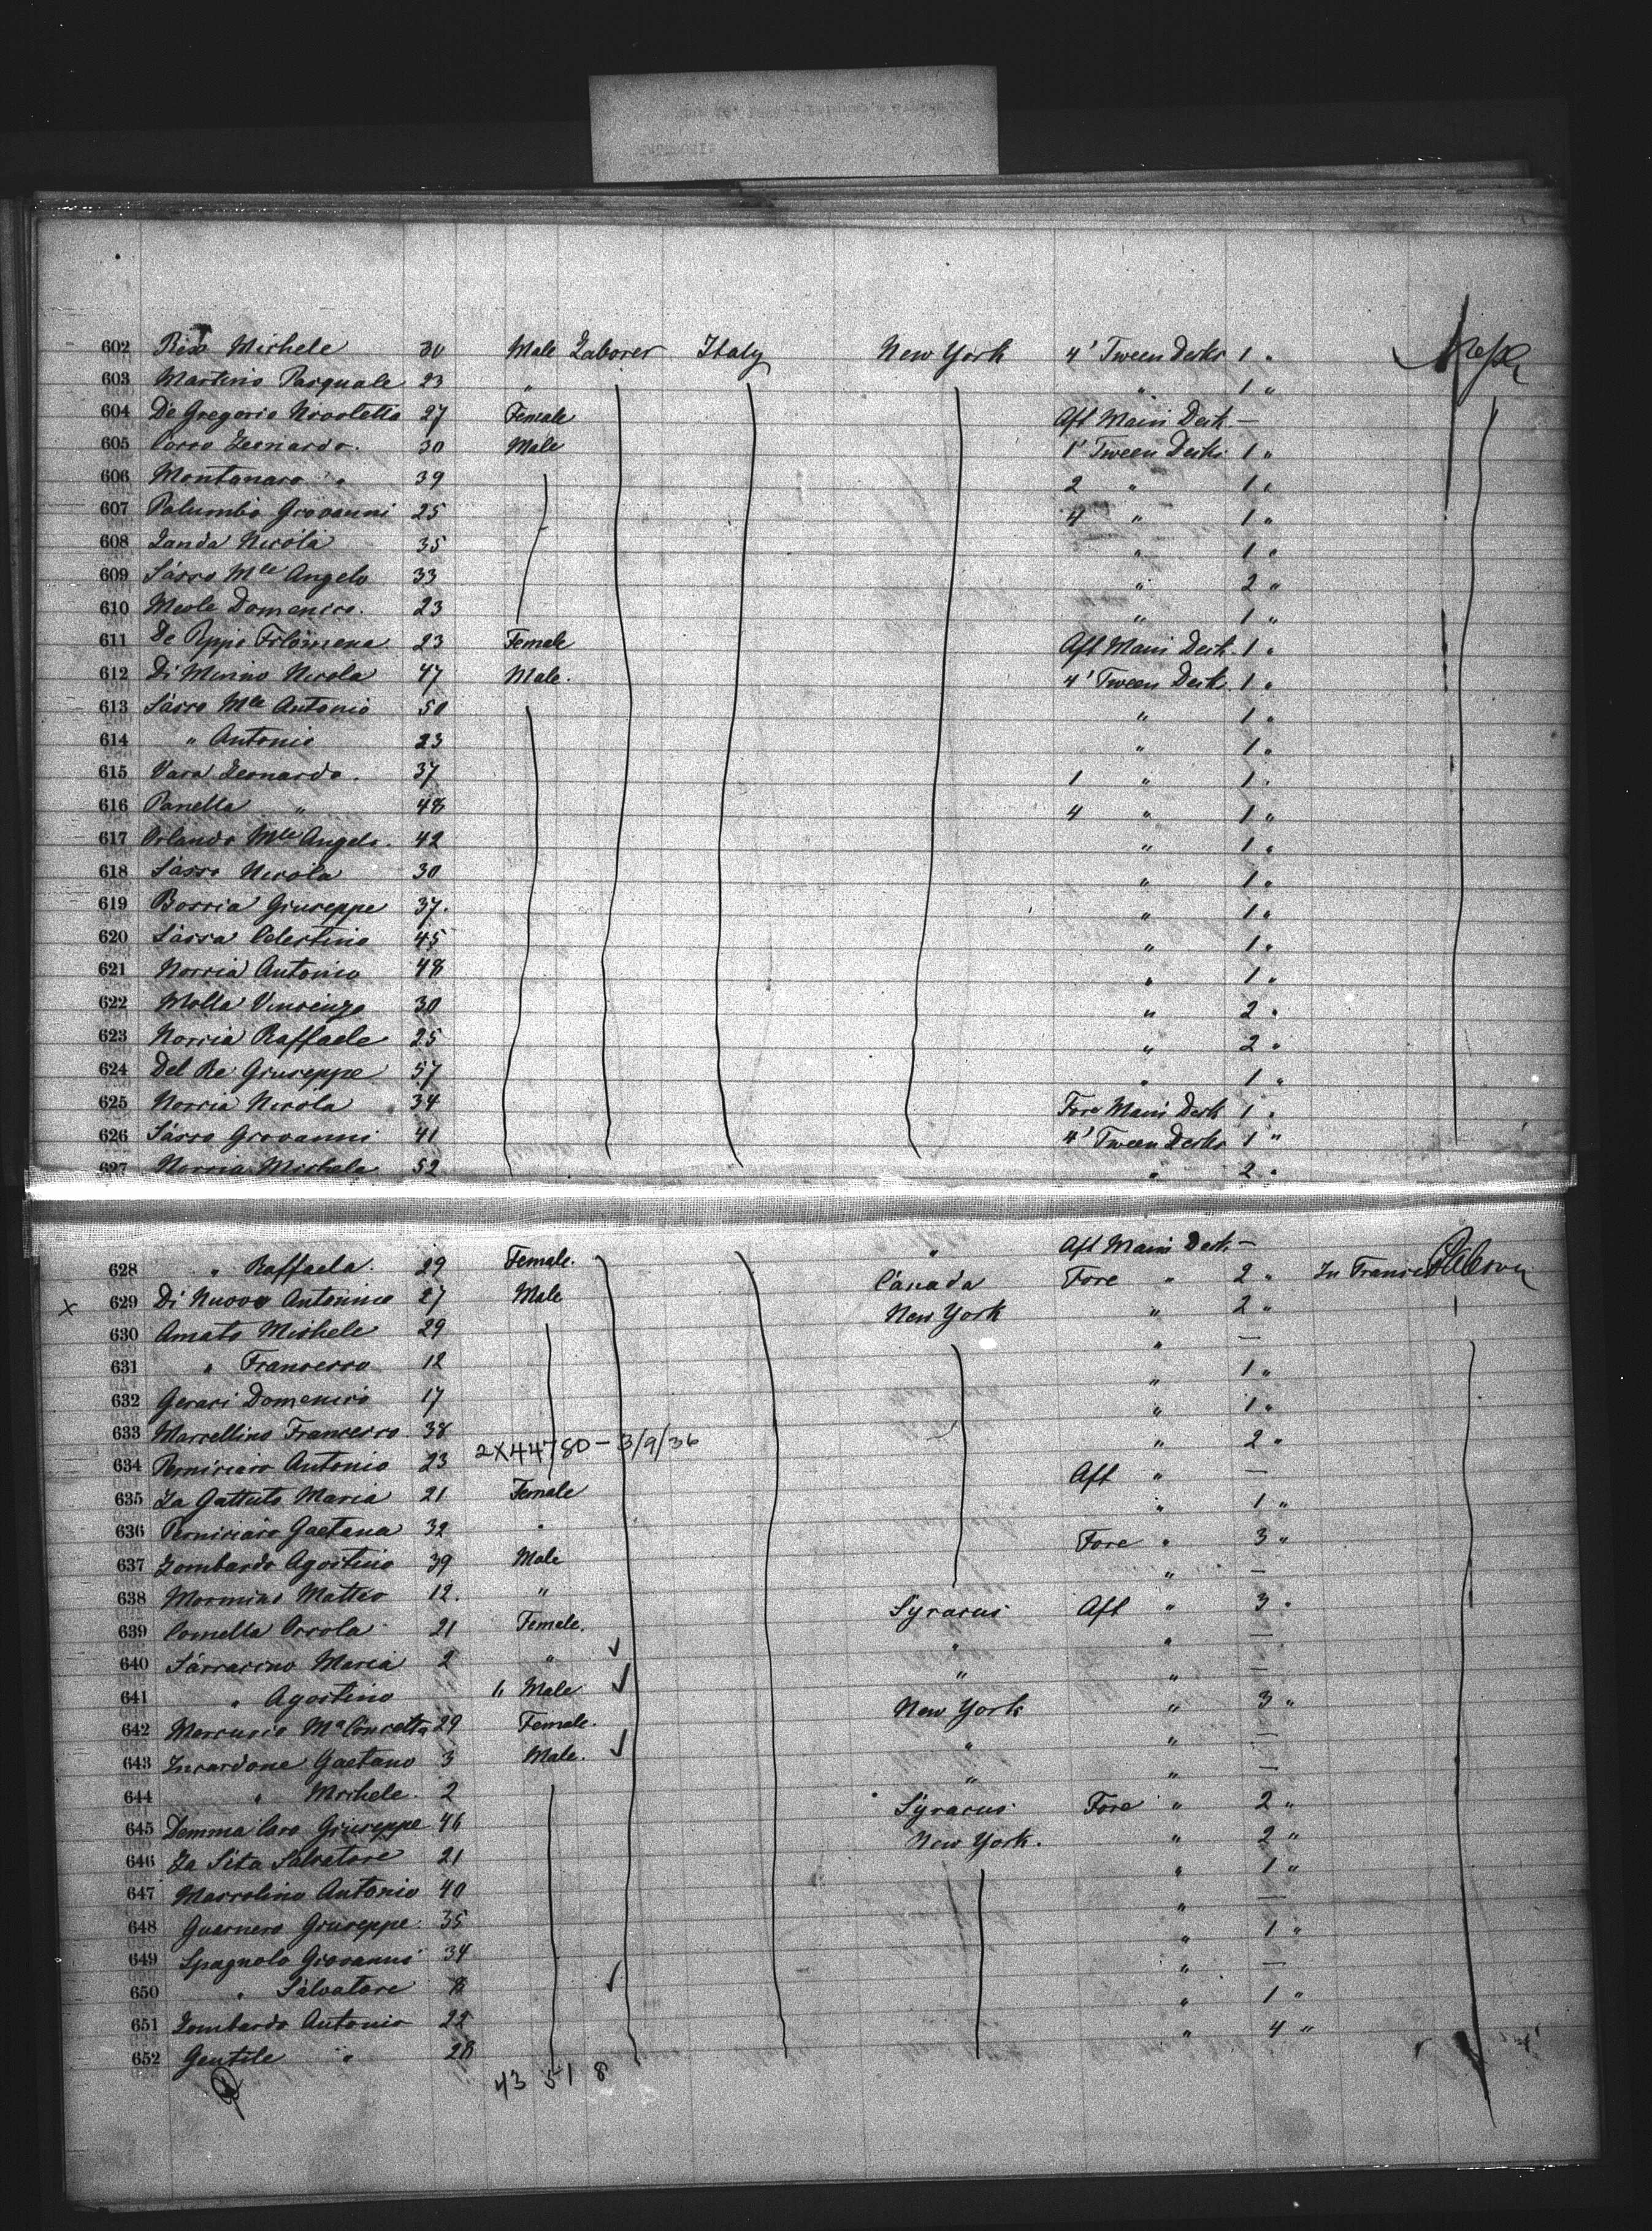 602 Rea Michele 30 Male Laborer Italy New York 4' Tween Decks 1 "
603 Martino Pasquale 23 " " 1 "
604 De Gregorio Nicoletta 27 Female Aft Main Deck —
605 Cocco Leonardo. 30 Male 1' Tween Decks 1 "
606 Montanaro " 39 2 " 1 "
607 Palumbo Giovanni 25 4 " 1 "
608 Landa Nicola 35 " 1 "
609 Sasso Mle Angelo 33 " 2 "
610 Meole Domenico. 23 " 1 "
611 De Peppo Filomena 23 Female Aft Main Deck 1 "
612 Di Minno Nicola 47 Male. 4' Tween Deck 1 "
613 Sasso Mle Antonio 50 " 1 "
614 " Antonio 23 " 1 "
615 Vara Leonardo. 37 1 " 1 "
616 Panella " 48 4 " 1 "
617 Orlando Mle Angelo. 42 " 1 "
618 Sasso Nicola 30 " 1 "
619 Boccia Giuseppe 37. " 1 "
620 Sassa Celestino 45 " 1 "
621 Norcia Antonio 48 " 1 "
622 Molla Vincenzo 30 " 2 "
623 Norcia Raffaele 25 " 2 "
624 Del Re Giuseppe 57 " 1 "
625 Norcia Nicola 34 Fore Main Deck 1 "
626 Sasso Giovanni 41 4' Tween Decks 1 "
627 Norcia Michele 52 " 2 "
628 " Raffaela. 29 Female. " Aft Main Deck —
x 629 Di Nuovo Antonino 27 Male Canada Fore " 2 " In Transit Palermo
630 Amato Michele 29 New York " 2 "
631 " Francesco 12 " —
632 Geraci Domenico 17 " 1 "
633 Marcellino Francesco. 38 " 1 "
634 Perniciaro Antonio 23 2X44780 - 3/9/36 " 2 "
635 La Gattuta Maria 21 Female Aft " —
636 Perniciaro Gaetana 32 " " 1 "
637 Lombardo Agostino 39 Male Fore " 3 "
638 Mormino Matteo 12. " " —
639 Comella Orsola 21 Female. Syracus Aft " 3 "
640 Sarracino Maria 2 " " " —
641 " Agostino " Male " " —
642 Mercurio Ma Concetta 29 Female. New York " 3 "
643 Incardone Gaetano 3 Male. " " —
644 " Michele. 2 " " —
645 Demma Caro Giuseppe 46 Syracus Fore " 2 "
646 La Sita Salvatore 21 New York. " 2 "
647 Marcolino Antonio 40 " 1 "
648 Guernero Giuseppe. 35 " —
649 Spagnolo Giovanni 34 " 1 "
650 " Salvatore 8 " —
651 Lombardo Antonio 22 " 1 "
652 Gentile " 28 " 4 "
43 51 8